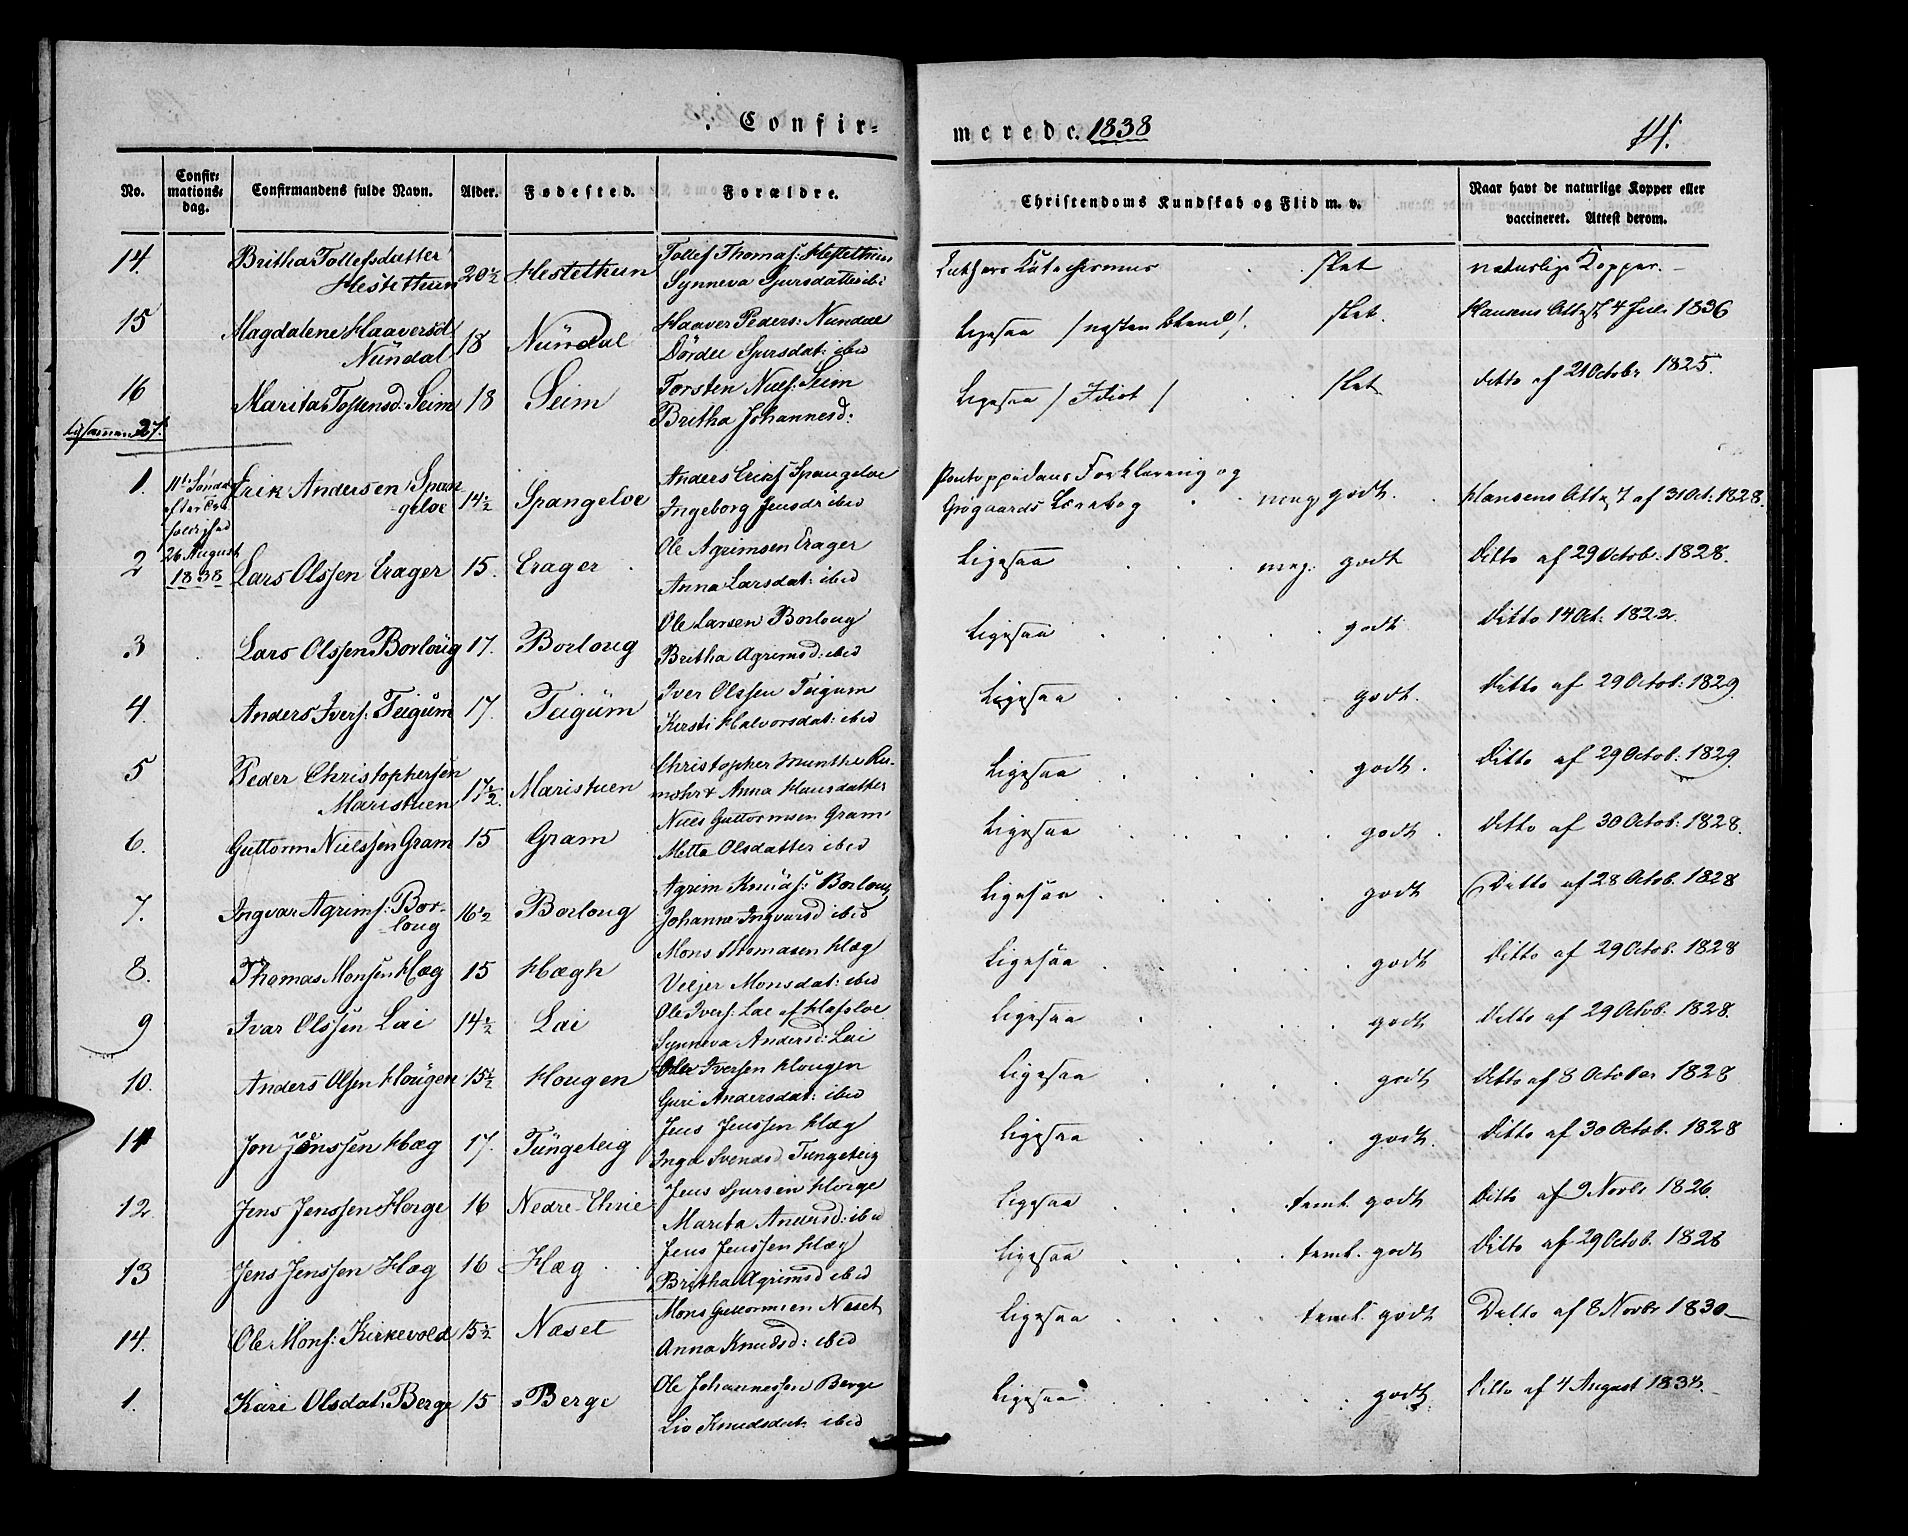 Confir-
merede. 1838
14.
No.
Confir-
mations-
dag.
Confirmandens fulde Navn.
Alder.
Fødested.
Forældre.
Christendoms Kundskab og Flid m. v.
Naar havt de naturlige Kopper eller
vaccineret. Attest derom.
14. Britha Tollefsdatter Hestethun 20½ Hestethun Tollef Thomas: Hestethun Synneva Sjursdatter ibi Luthers Katechismus slet naturlige Kopper.
15 Magdalene Haaversd Nündal 18 Nündal Haaver Peders: Nundal Dørdee Sjursdat: ibid Ligesaa / nesten blind /. slet. Hansens Attest 4 Juli 1836
16 Marita Tostensd: Seim 18 Seim Torsten Niels: Seim Britha Johannesd: Ligesaa / Idiot / slet ditto af 21 Octobr 1825.
tilsammen 27.
1. 11te Søndag efter Trefoldighed 26 August 1838 Erik Andersen Spangeloe 14½ Spangeloe Anders Eriks Spangeloe Ingeborg Jensdr ibid Pontoppidans Forklaring og Grøgaards Lærebog meg godt. Hansens Att af 31 Oct: 1828.
2 Lars Olssen Erager 15. Erager Ole Agrimsen Erager Anna Larsdat: ibid Ligesaa meg. godt Ditto af 29 Octob: 1828.
3 Lars Olssen Borloüg 17. Borloug Ole Larsen Borloug Britha Agrimsd: ibid Ligesaa godt Ditto 14 Oct: 1822.
4. Anders Ivers: Teigüm 17. Teigüm Iver Olssen Teigum Kersti Halvorsdat: ibid Ligesaa godt. Ditto af 29 Octob: 1829.
5 Peder Christophersen Maristuen 17½. Maristuen Christopher Munthe Rumohr & Anna Hansdatter Ligesaa godt. Ditto af 29 Octob: 1829.
6. Guttorm Nielssen Gram 15 Gram Niels Guttormsen Gram Metta Olsdatter ibid Ligesaa godt. Ditto af 30 Octob: 1828.
7. Ingvar Agrims: Borloug 16½ Borloug Agrim Knüds: Borloug Johanne Ingvarsd ibid Ligesaa godt Ditto af 28 Octob. 1828
8. Thomas Monsen Hæg 15 Hægh Mons Thomasen Hæg Veljer Monsdat: ibid Ligesaa godt Ditto af 29 Octob. 1828
9 Ivar Olssen Lai 14½ Lai Ole Ivers: Lai af Hafsloe Synneva Andersd: Lai Ligesaa godt Ditto af 29 Octob. 1828.
10. Anders Olsen Hougen 15½ Hougen Ole Iversen Hougen Guri Andersdat: ibid Ligesaa godt Ditto af 8 October 1828
11 Jon Jenssen Hæg 17. Tüngeteig Jens Jenssen Hæg Inga Svendsd Tungeteig Ligesaa godt. Ditto af 30 Octob. 1828
12. Jens Jenssen Horge 16 Nedre Ehrie Jens Sjursen Horge Marita Andersd: ibid Ligesaa teml. godt Ditto af 9 Novbr 1826.
13 Jens Jenssen Hæg 16 Hæg Jens Jenssen Hæg Britha Agrimsd ibid Ligesaa teml. godt Ditto af 29 Octob. 1828
14. Ole Mons: Kirkevold 15½ Næset Mons Guttormsen Næset Anna Knudsd: ibid Ligesaa teml. godt Ditto af 8 Novbr 1830
1. Kari Olsdat: Berge 15 Berge Ole Johannessen Berge Lio Knudsdat: ibid Ligesaa godt Ditto af 4 August 1838.